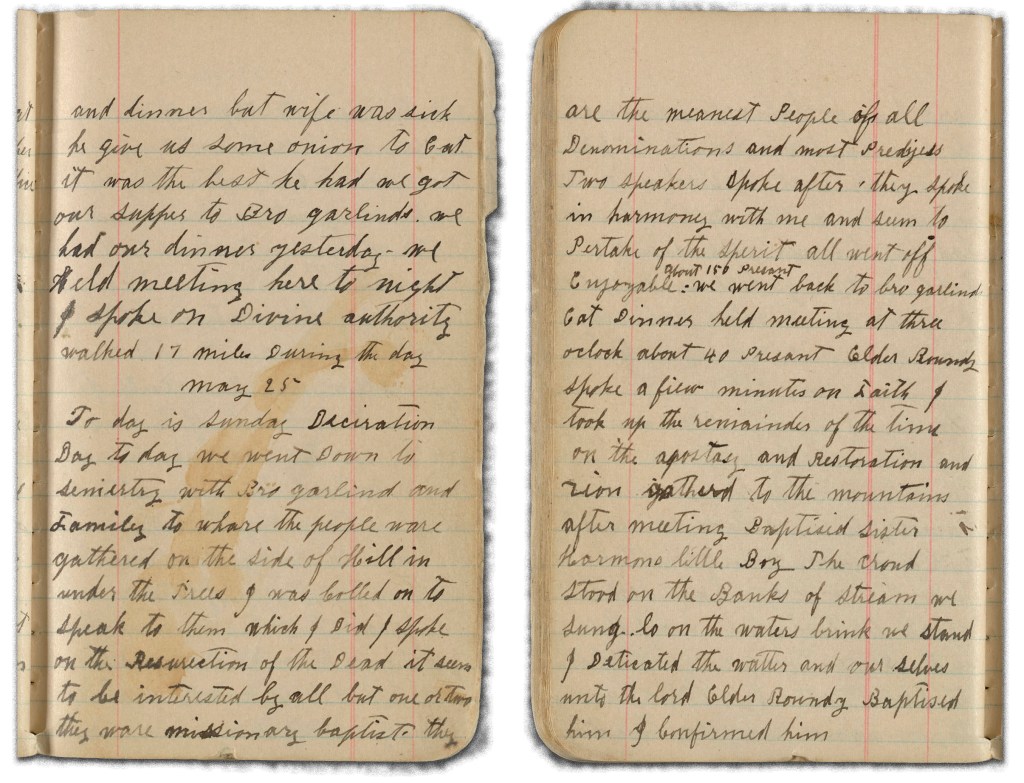 and dinner but wife was sick
he give us some onion to Eat
it was the best he had we got
our supper to Bro garlinds. we
had our dinner yesterday - we
Held meeting here to night
I spoke on Divine authority
walked 17 miles During the day
may 25
To day is sunday Deciration
Day to day we went Down to
semertry with Bro garlind and
Family to whare the people ware
gathered on the side of Hill in
under the Trees I was Colled on to
speak to them which I Did I spoke
on the Resurection of the Dead it seem
to be interested by all but one or two
they ware missionary baptist - they
are the meanest People of all
Denominations and most Predijess
Two speakers spoke after . they spoke
in harmoney with me and seem to
Pertake of the sperit all went off
about 150 Presant
Enjoyable : we went back to bro garlind
Eat Dinner held meeting at three
oclock about 40 Presant Elder Roundy
spoke a fiew minutes on Faith I
took up the remainder of the time
on the apostasy and Restoration and
zion gatherd to the mountains
after meeting Baptised sister
Harmons little Boy The croud
stood on the Banks of stream we
sung. lo on the waters brink we stand
I Deticated the watter and our selves
unto the lord Elder Roundy Baptised
him I Confirmed him